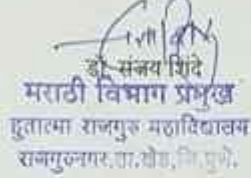 डॉ. संजय शिंदे
मराठी विभाग प्रमुख
हुतात्मा राजगुरु महाविद्यालय
राजगुरुनगर.ता.खेड,जि.पुणे.